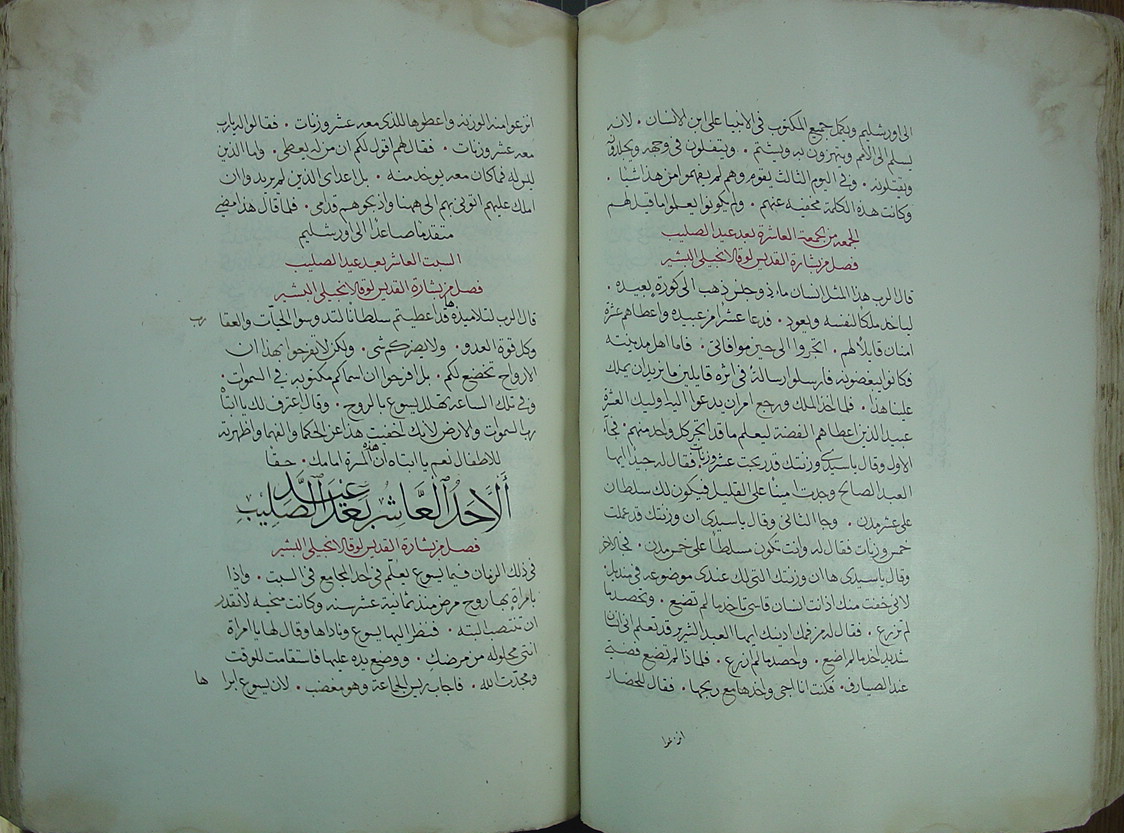 الى اورشليم ويكمل جميع المكتوب في الانبيا على ابن الانسان . لانه
يسلم الى الامم ويهزون به ويشتم . ويتفلون في وجهه ويجلدونه
ويقتلونه . وفي اليوم الثالث يقوم وهم لم يفهموا من هذا شيا .
وكانت هذه الكلمة مخفيه عنهم . ولم يكونوا يعلموا ما قيل لهم
الجمعه من الجمعة العاشرة بعد عيد الصليب
فصل من بشارة القديس لوقا الانجيلي البشير
قال الرب هذا المثل انسان ماذو جنس ذهب الى كورة بعيده .
لياخذ ملكا لنفسه ويعود . فدعا عشرا من عبيده واعطاهم عشرة
امنان قايلا لهم . اتجروا الى حين موافاتي . فاما اهل مدينته
فكانوا يبغضونه فارسلوا رسالة في اثره قايلين ما نريد ان يملك
علينا هذا . فلما اخذ الملك ورجع امر ان يدعوا اليه وليك العشرة
عبيد الذين اعطاهم الفضة ليعلم ما قد اتجر كل واحد منهم . فجآ
الاول وقال ياسيدي وزنتك قد ربحت عشر وزنات فقال له جيدا ايها
العبد الصالح وجدت امينا على القليل فيكون لك سلطان
على عشر مدن . وجا الثاني وقال ياسيدي ان وزنتك قد عملت
خمس وزنات فقال له وانت تكون مسلطا على خمس مدن . فجا الاخر
وقال ياسيدي ها ان وزنتك التي لك عندي موضوعه في منديل
لاني خفت منك اذ انت انسان قاسي تاخد ما لم تضع . وتحصد ما
لم تزرع . فقال له من فمك ادينك ايها العبد الشرير قد تعلم اني انسان
شديد اخد ما لم اضع . واحصد ما لم ازرع . فلماذا لم تضع فضتي
عند الصيارف . فكنت انا اجي واخذها مع ربحها . فقال للحضار
انزعوا
انزعوا منه الوزنه واعطوها للذي معه عشر وزنات . فقالوا له يارب
معه عشر وزنات . فقال لهم اقول لكم ان من له يعطى . واما الذي
ليس له فما كان معه يوخد منه . بل اعداي الذين لم يريدوا ان
املك عليهم اتوني بهم الى ههنا واذبحوهم قدامي . فلما قال هذا مضى
متقدما صاعدا الى اورشليم
السبت العاشر بعد عيد الصليب
فصل من بشارة القديس لوقا الانجيلي البشير
قال الرب لتلاميذه ها قد اعطيتم سلطانا لتدوسوا الحيات والعقا رب
وكل قوة العدو . ولا يضركم شي . ولكن لا تفرحوا بهذا ان
الارواح تخضع لكم . بل افرحوا ان اسماكم مكتوبه في السموات .
وفي تلك الساعة تهلل يسوع بالروح . وقال اعترف لك يا ابتاه
رب السموات والارض لانك اخفيت هذا عن الحكما والفهما واظهرته
للاطفال نعم يا ابتاه ان هذه المسرة امامك . حقا
ألاحد العاشر بعد عيد الصليب
فصل من بشارة القديس لوقا الانجيلي البشير
في ذلك الزمان فيما يسوع يعلم في احد المجامع في السبت . واذا
بامراة بها روح مرض منذ ثمانية عشر سنه وكانت منحنيه لا تقدر
ان تنتصب البته . فنظر اليها يسوع وناداها وقال لها يا امراة
انتي محلوله من مرضك . ووضع يده عليها فاستقامت للوقت
ومجدت الله . فاجاب رييس الجماعة وهو مغضب . لان يسوع ابرا ها